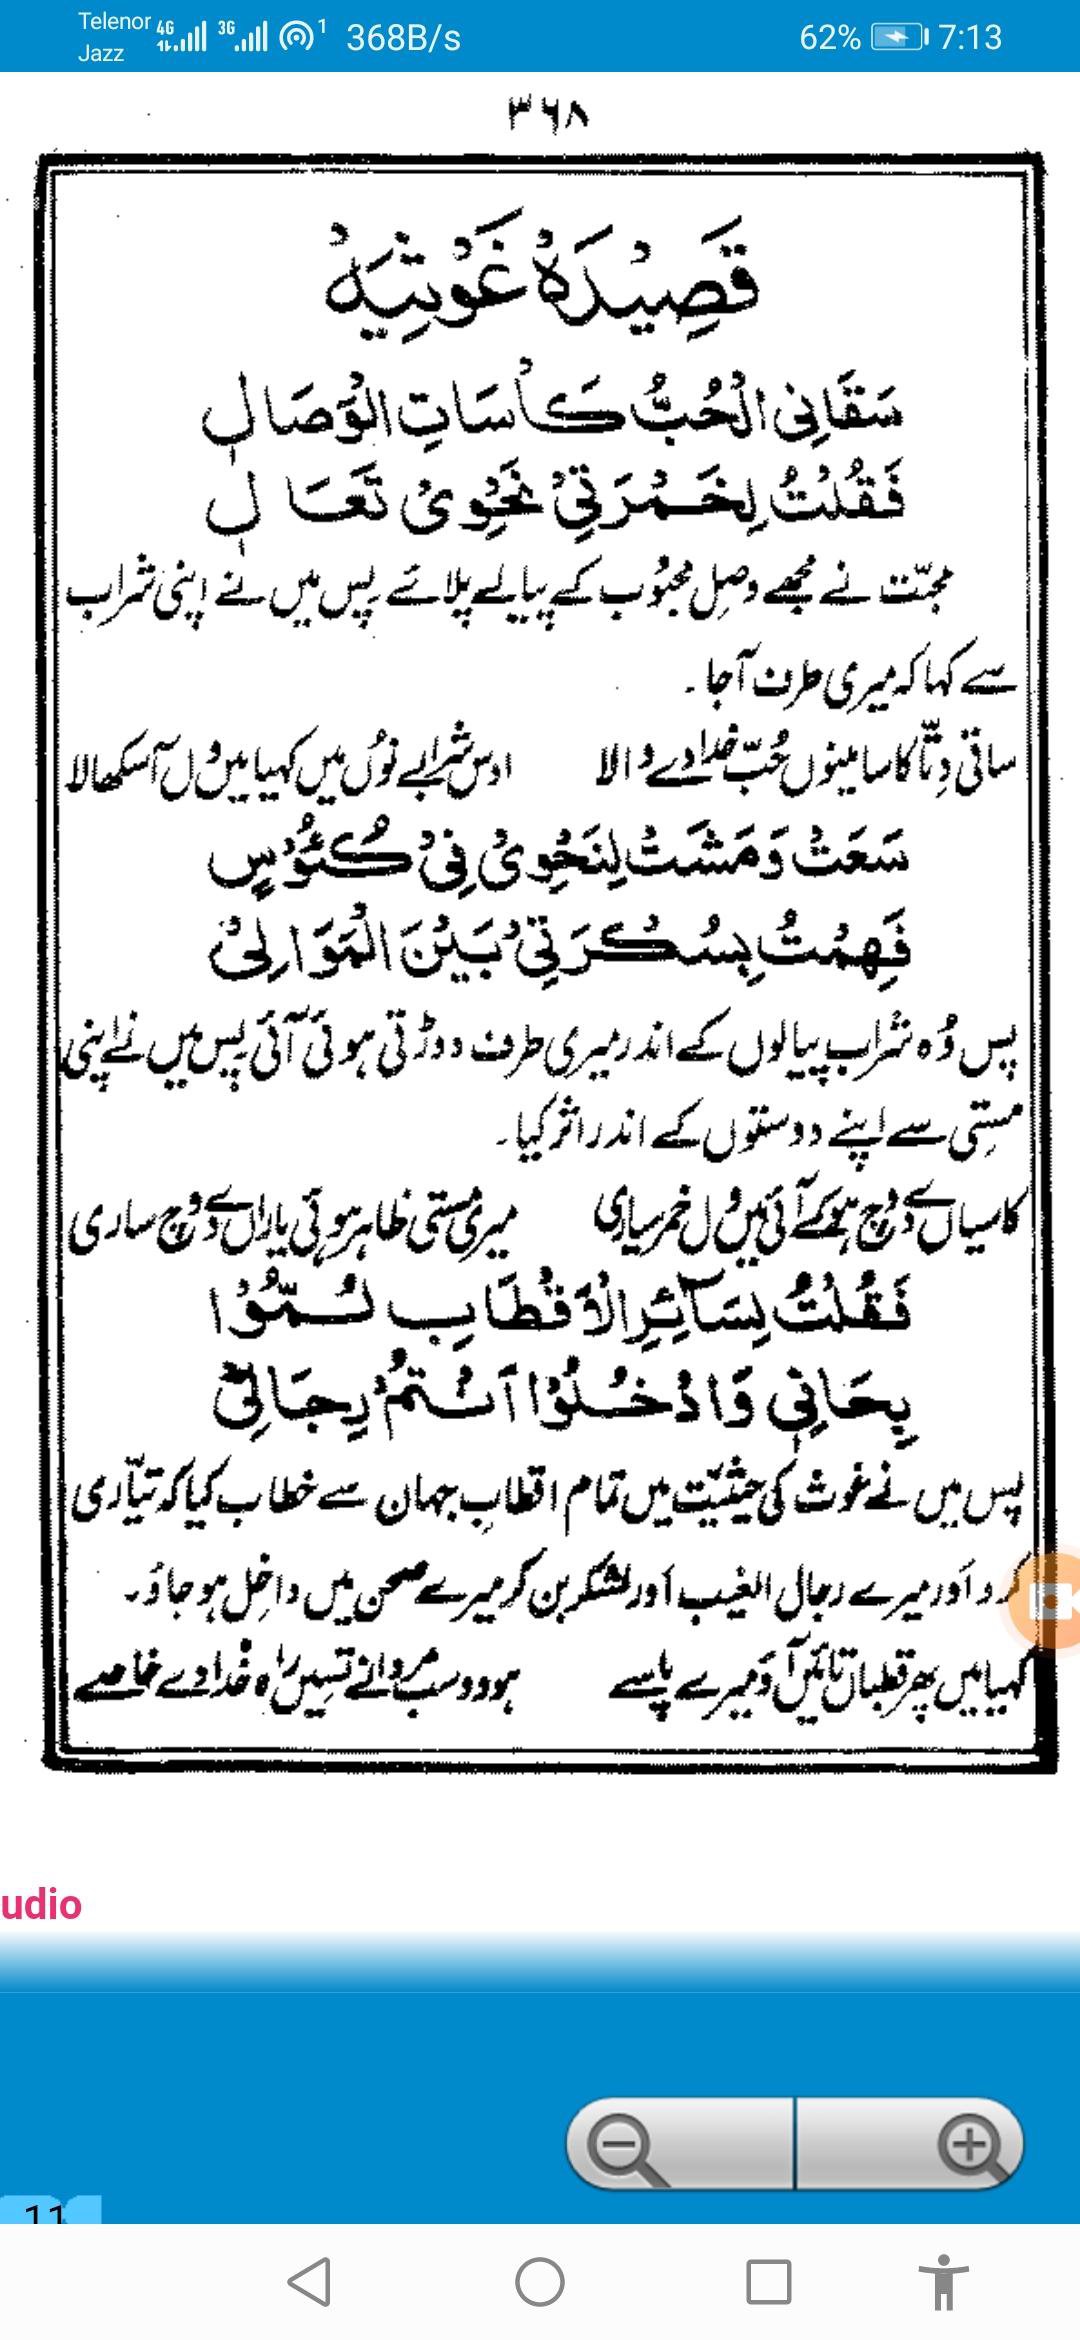 Telenor 4G 3G 1 368B/s 62% 7:13
Jazz
۳۶۸
قَصِیْدَہْ غَوْثِیَہْ
سَقَانِی الْحُبُّ كَأْسَاتِ الْوِصَالِ
فَقُلْتُ لِخَمْرَتِیْ نَحْوِیْ تَعَالِ
محبّت نے مجھے وصلِ محبُوب کے پیالے پلائے پس میں نے اپنی شراب
سے کہا کہ میری طرف آجا۔
ساقی دِتّا کاسا مینوں حُبّ خدا دے والا اوس شرابے نوُں میں کہیا میں ول آ سکھالا
سَعَتْ وَمَشَتْ لِنَحْوِیْ فِیْ كُئُوْسٍ
فَهِمْتُ بِسُكْرَتِیْ بَیْنَ الْمَوَالِیْ
پس وُہ شراب پیالوں کے اندر میری طرف دوڑتی ہوئی آئی پس میں نے اپنی
مستِی سے اپنے دوستوں کے اندر اثر کیا۔
کاسیاں دے وچ ہو کے آئی میں ول خمر پیاری میری مستی ظاہر ہوئی یاراں دے وچ ساری
فَقُلْتُ لِسَآئِرِ الْاَقْطَابِ لُمُّوْا
بِحَانِیْ وَادْخُلُوْا اَنْتُمْ رِجَالِیْ
پس میں نے غوث کی حیثیّت میں تمام اقطابِ جہان سے خطاب کیا کہ تیّاری
کرو اَور میرے رجال الغیب اَور لشکر بن کر میرے صحن میں داخِل ہو جاؤ۔
کہیا میں پھر قطباں تائیں آؤ میرے پاسے ہوو وسب مردانے تسیں راہ خُدا دے خاصے
udio
11